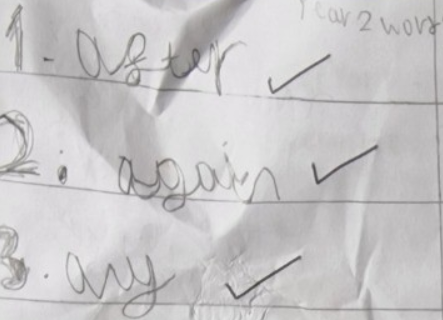 Year 2 words
1. after ✓
2. again ✓
3. any ✓